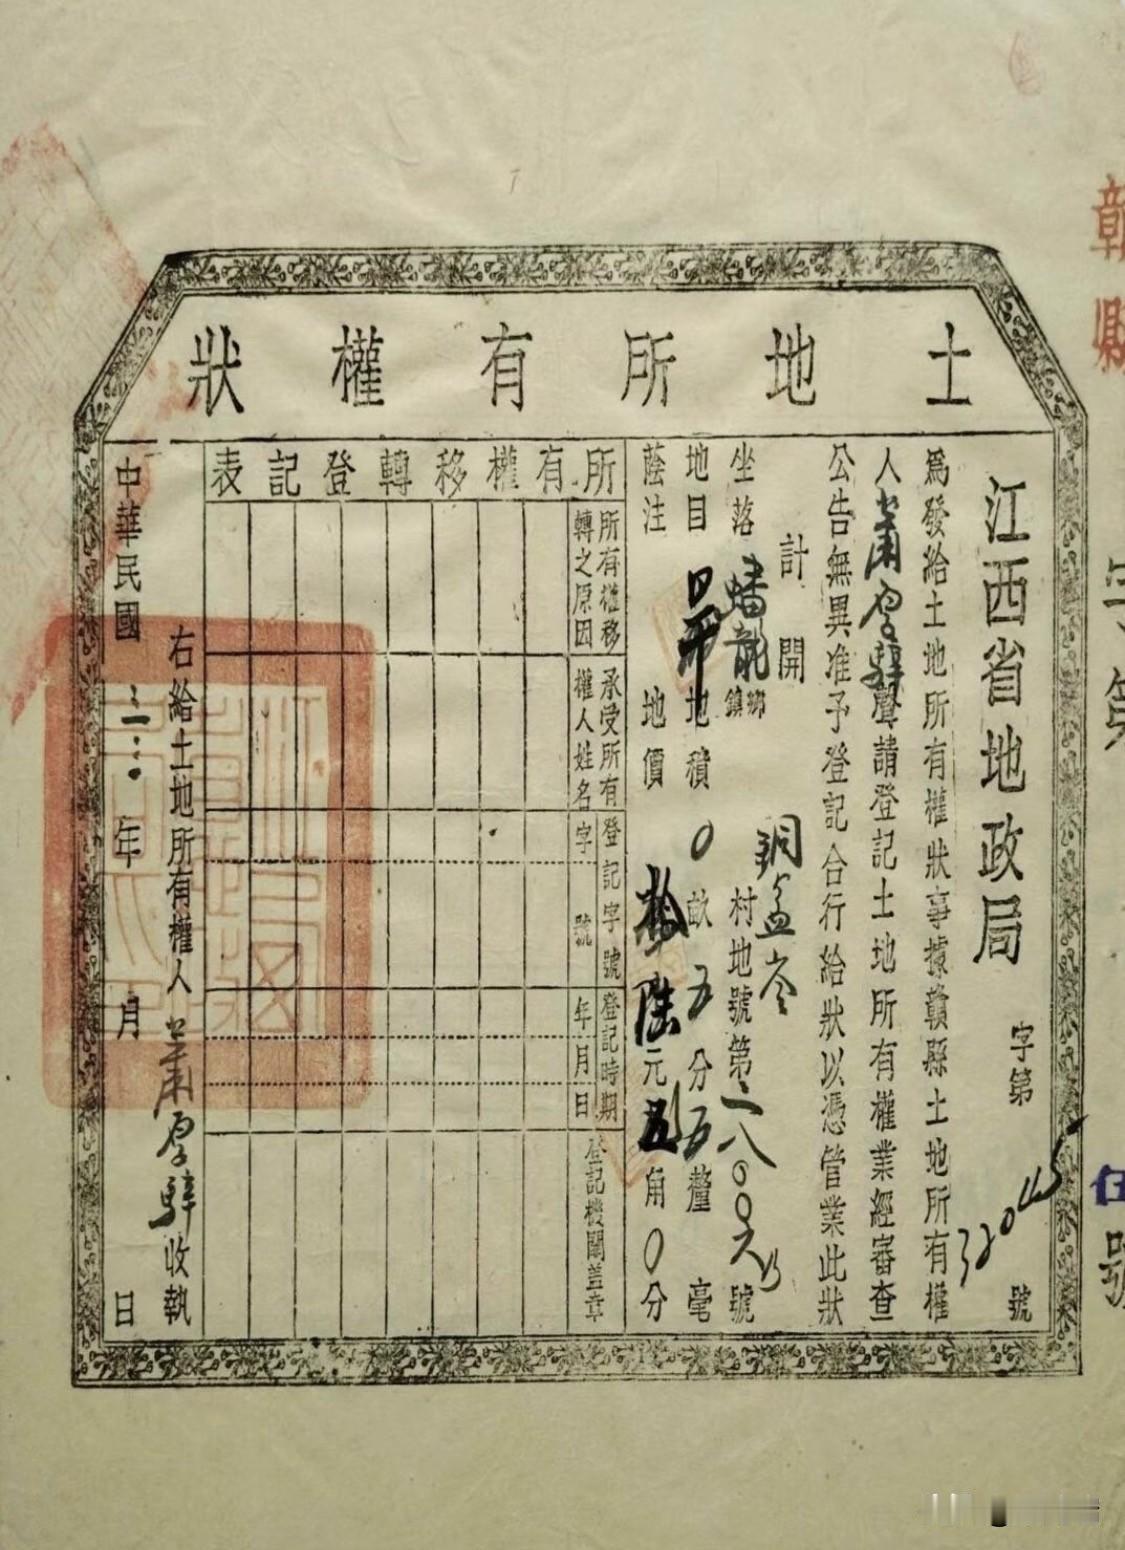 土地所有權狀
贛縣
字第
號
江西省地政局
字第32045號
爲發給土地所有權狀事據贛縣土地所有權
人蕭厚驊聲請登記土地所有權業經審查
公告無異准予登記合行給狀以憑管業此狀
計開
坐落蟠龍鄉鎮銅盆岺村地號第
號
地目
地積0畝五分五釐毫
蔭注
地價拾陸元五角0分
所有權移轉登記表
所有權移轉之原因
承受所有權人姓名
登記字號
字號
登記時期
年月日
登記機關蓋章
右給土地所有權人蕭厚驊收執
中華民國
年
月
日